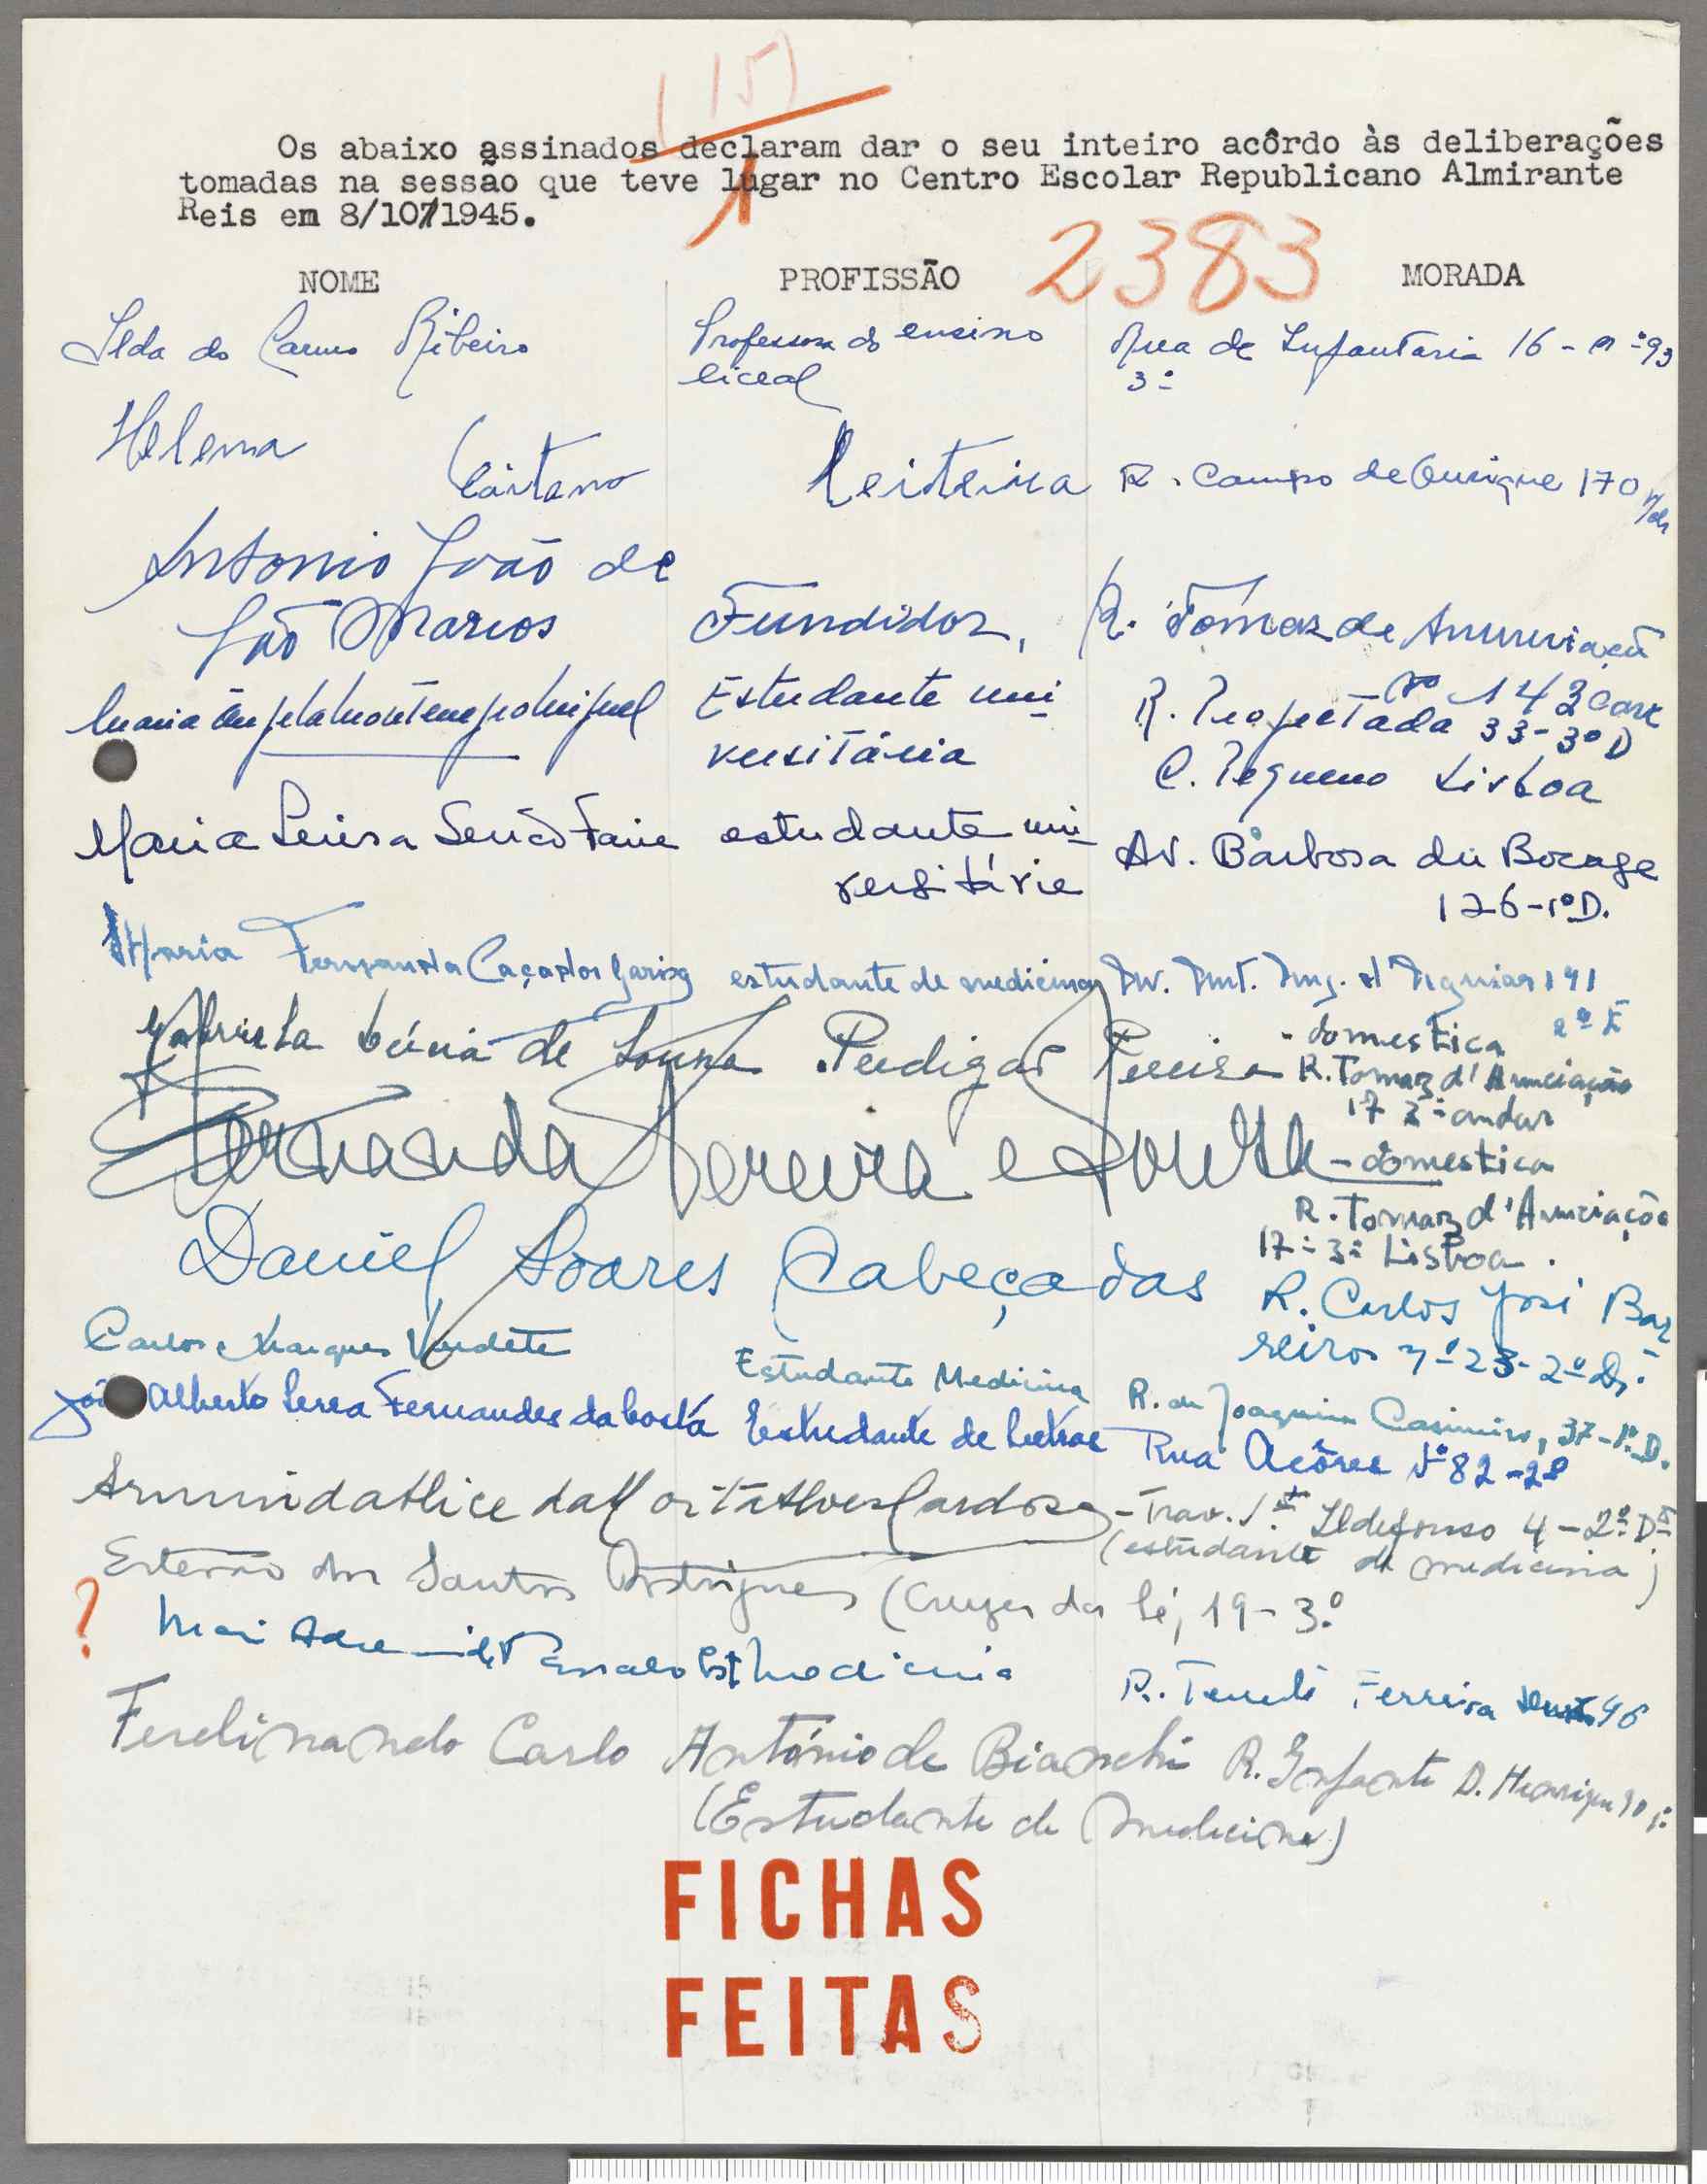 (15)
Os abaixo assinados declaram dar o seu inteiro acôrdo às deliberações
tomadas na sessão que teve lugar no Centro Escolar Republicano Almirante
Reis em 8/10/1945.
1
2383
NOME PROFISSÃO MORADA
Ilda do Carmo Ribeiro Professora do ensino Rua de Infantaria 16 - nº 93
liceal 3º
Helena Caitano Leiteira R. Campo de Ourique 170
Antonio João de
São Marcos Fundidor, R. Tomaz de Anunciação
nº 143 Cave
Maria Estudante uni R. Projectada 33-3º D
versitária C. Pequeno Lisboa
Maria Luisa estudante uni Av. Barbosa du Bocage
versitária 126-1ºD.
Maria Fernanda Caçador estudante de medicina Av. Ant. Aug. d'Aguiar 191
2º E
Gabriela Lúcia de Sousa Perdigão Pereira - domestica
R. Tomaz d'Anunciação
17 3º andar
Fernanda Pereira e Sousa - domestica
R. Tomaz d'Anunciação
17-3º Lisboa.
Daniel Soares Cabeçadas R. Carlos José Bar
reiros nº 23-2º D.
Carlos Marques Vendete Estudante Medicina R. de Joaquim Casimiro, 37-1º D.
João Alberto Fernandes da Costa Estudante de Letras Rua Açôres Nº 82-2º
Arminda Alice da Alves Cardoso - Trav. Stº Ildefonso 4-2º Dtº
(estudante de medicina)
Estevão dos Santos Rodrigues (Cruzes da Sé, 19-3º
? Est Medicina R. Tenente Ferreira 96
Ferdinando Carlo António de Bianchi R. Infante D. Henrique
(Estudante de Medicina)
FICHAS
FEITAS